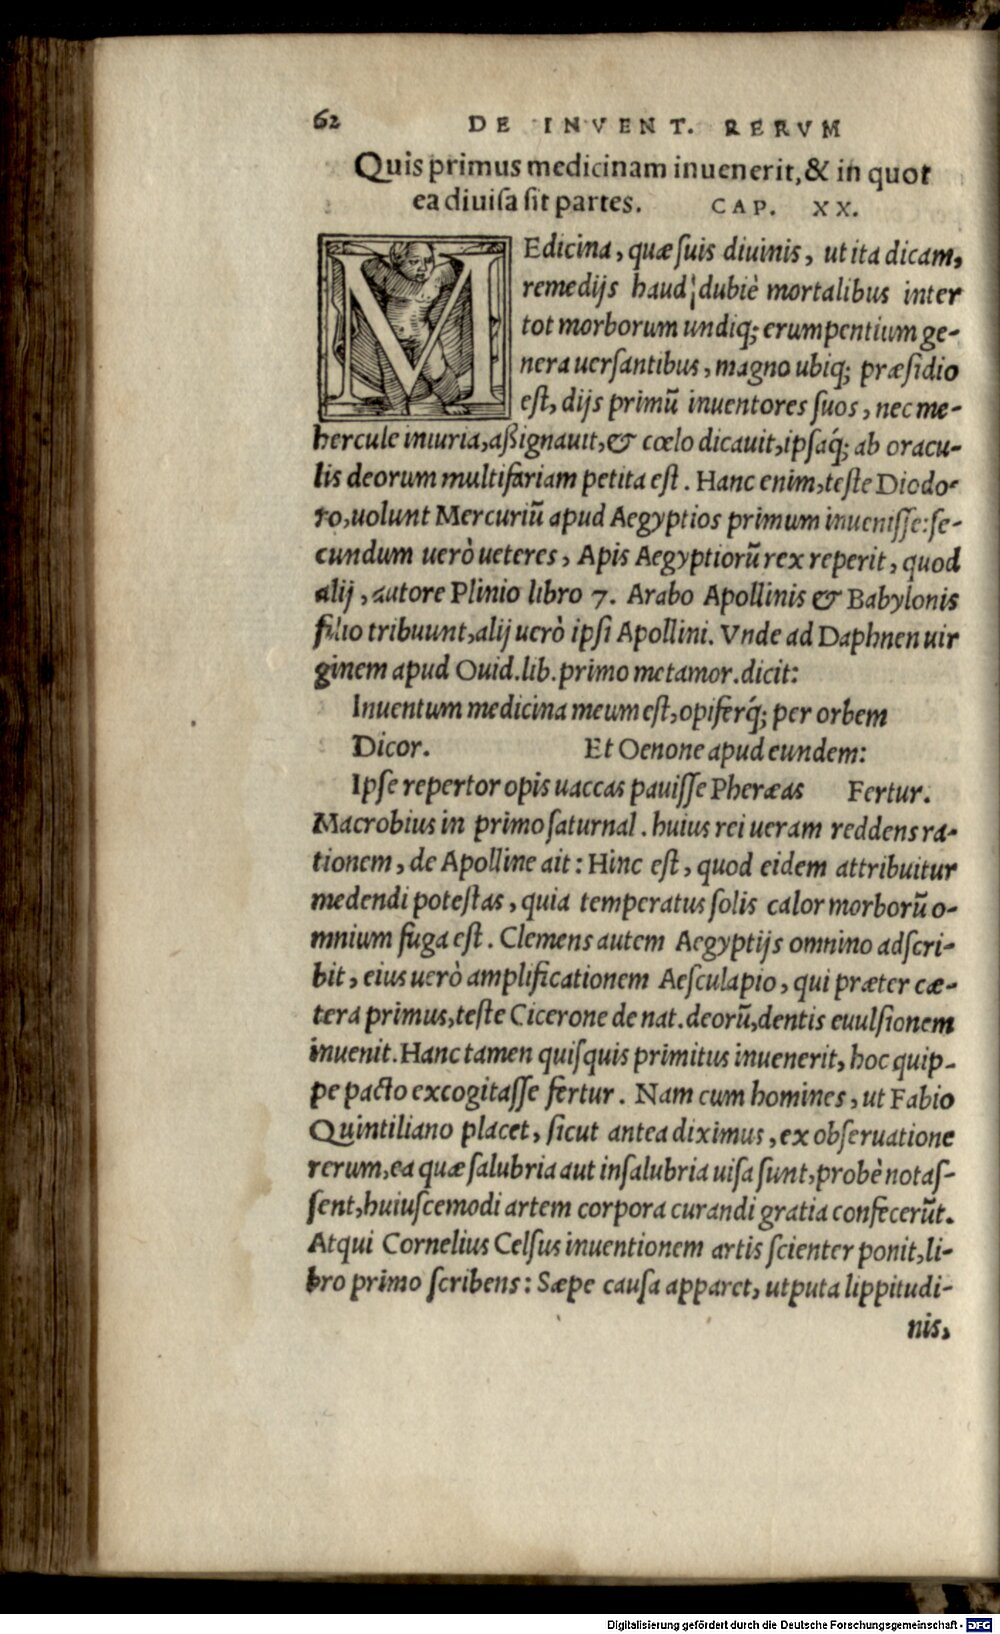 62 DE INVENT. RERVM
Quis primus medicinam inuenerit, & in quot
ea diuiſa ſit partes. CAP. XX.
MEdicina, quæ ſuis diuinis, ut ita dicam,
remedijs haud dubiè mortalibus inter
tot morborum undiq; erumpentium ge-
nera uerſantibus, magno ubiq; præſidio
eſt, dijs primũ inuentores ſuos, nec me-
hercule iniuria, aßignauit, & cœlo dicauit, ipſaq́; ab oracu-
lis deorum multifariam petita eſt. Hanc enim, teſte Diodo-
ro, uolunt Mercuriũ apud Aegyptios primum inueniſſe: ſe-
cundum uerò ueteres, Apis Aegyptiorũ rex reperit, quod
alij, autore Plinio libro 7. Arabo Apollinis & Babylonis
filio tribuunt, alij uerò ipſi Apollini. Vnde ad Daphnen uir
ginem apud Ouid. lib. primo metamor. dicit:
Inuentum medicina meum eſt, opiferq́; per orbem
Dicor. Et Oenone apud eundem:
Ipſe repertor opis uaccas pauiſſe Pheræas Fertur.
Macrobius in primo ſaturnal. huius rei ueram reddens ra-
tionem, de Apolline ait: Hinc eſt, quod eidem attribuitur
medendi poteſtas, quia temperatus ſolis calor morborũ o-
mnium fuga eſt. Clemens autem Aegyptijs omnino adſcri-
bit, eius uerò amplificationem Aeſculapio, qui præter cæ-
tera primus, teſte Cicerone de nat. deorũ, dentis euulſionem
inuenit. Hanc tamen quiſquis primitus inuenerit, hoc quip-
pe pacto excogitaſſe fertur. Nam cum homines, ut Fabio
Quintiliano placet, ſicut antea diximus, ex obſeruatione
rerum, ea quæ ſalubria aut inſalubria uiſa ſunt, probè notaſ-
ſent, huiuſcemodi artem corpora curandi gratia confecerũt.
Atqui Cornelius Celſus inuentionem artis ſcienter ponit, li-
bro primo ſcribens: Sæpe cauſa apparet, utputa lippitudi-
nis,
Digitalisierung gefördert durch die Deutsche Forschungsgemeinschaft - DFG